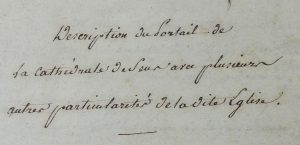 Description du Portail de
la Cathédrale de Sens avec plusieurs
autres particularités de la dite Eglise.